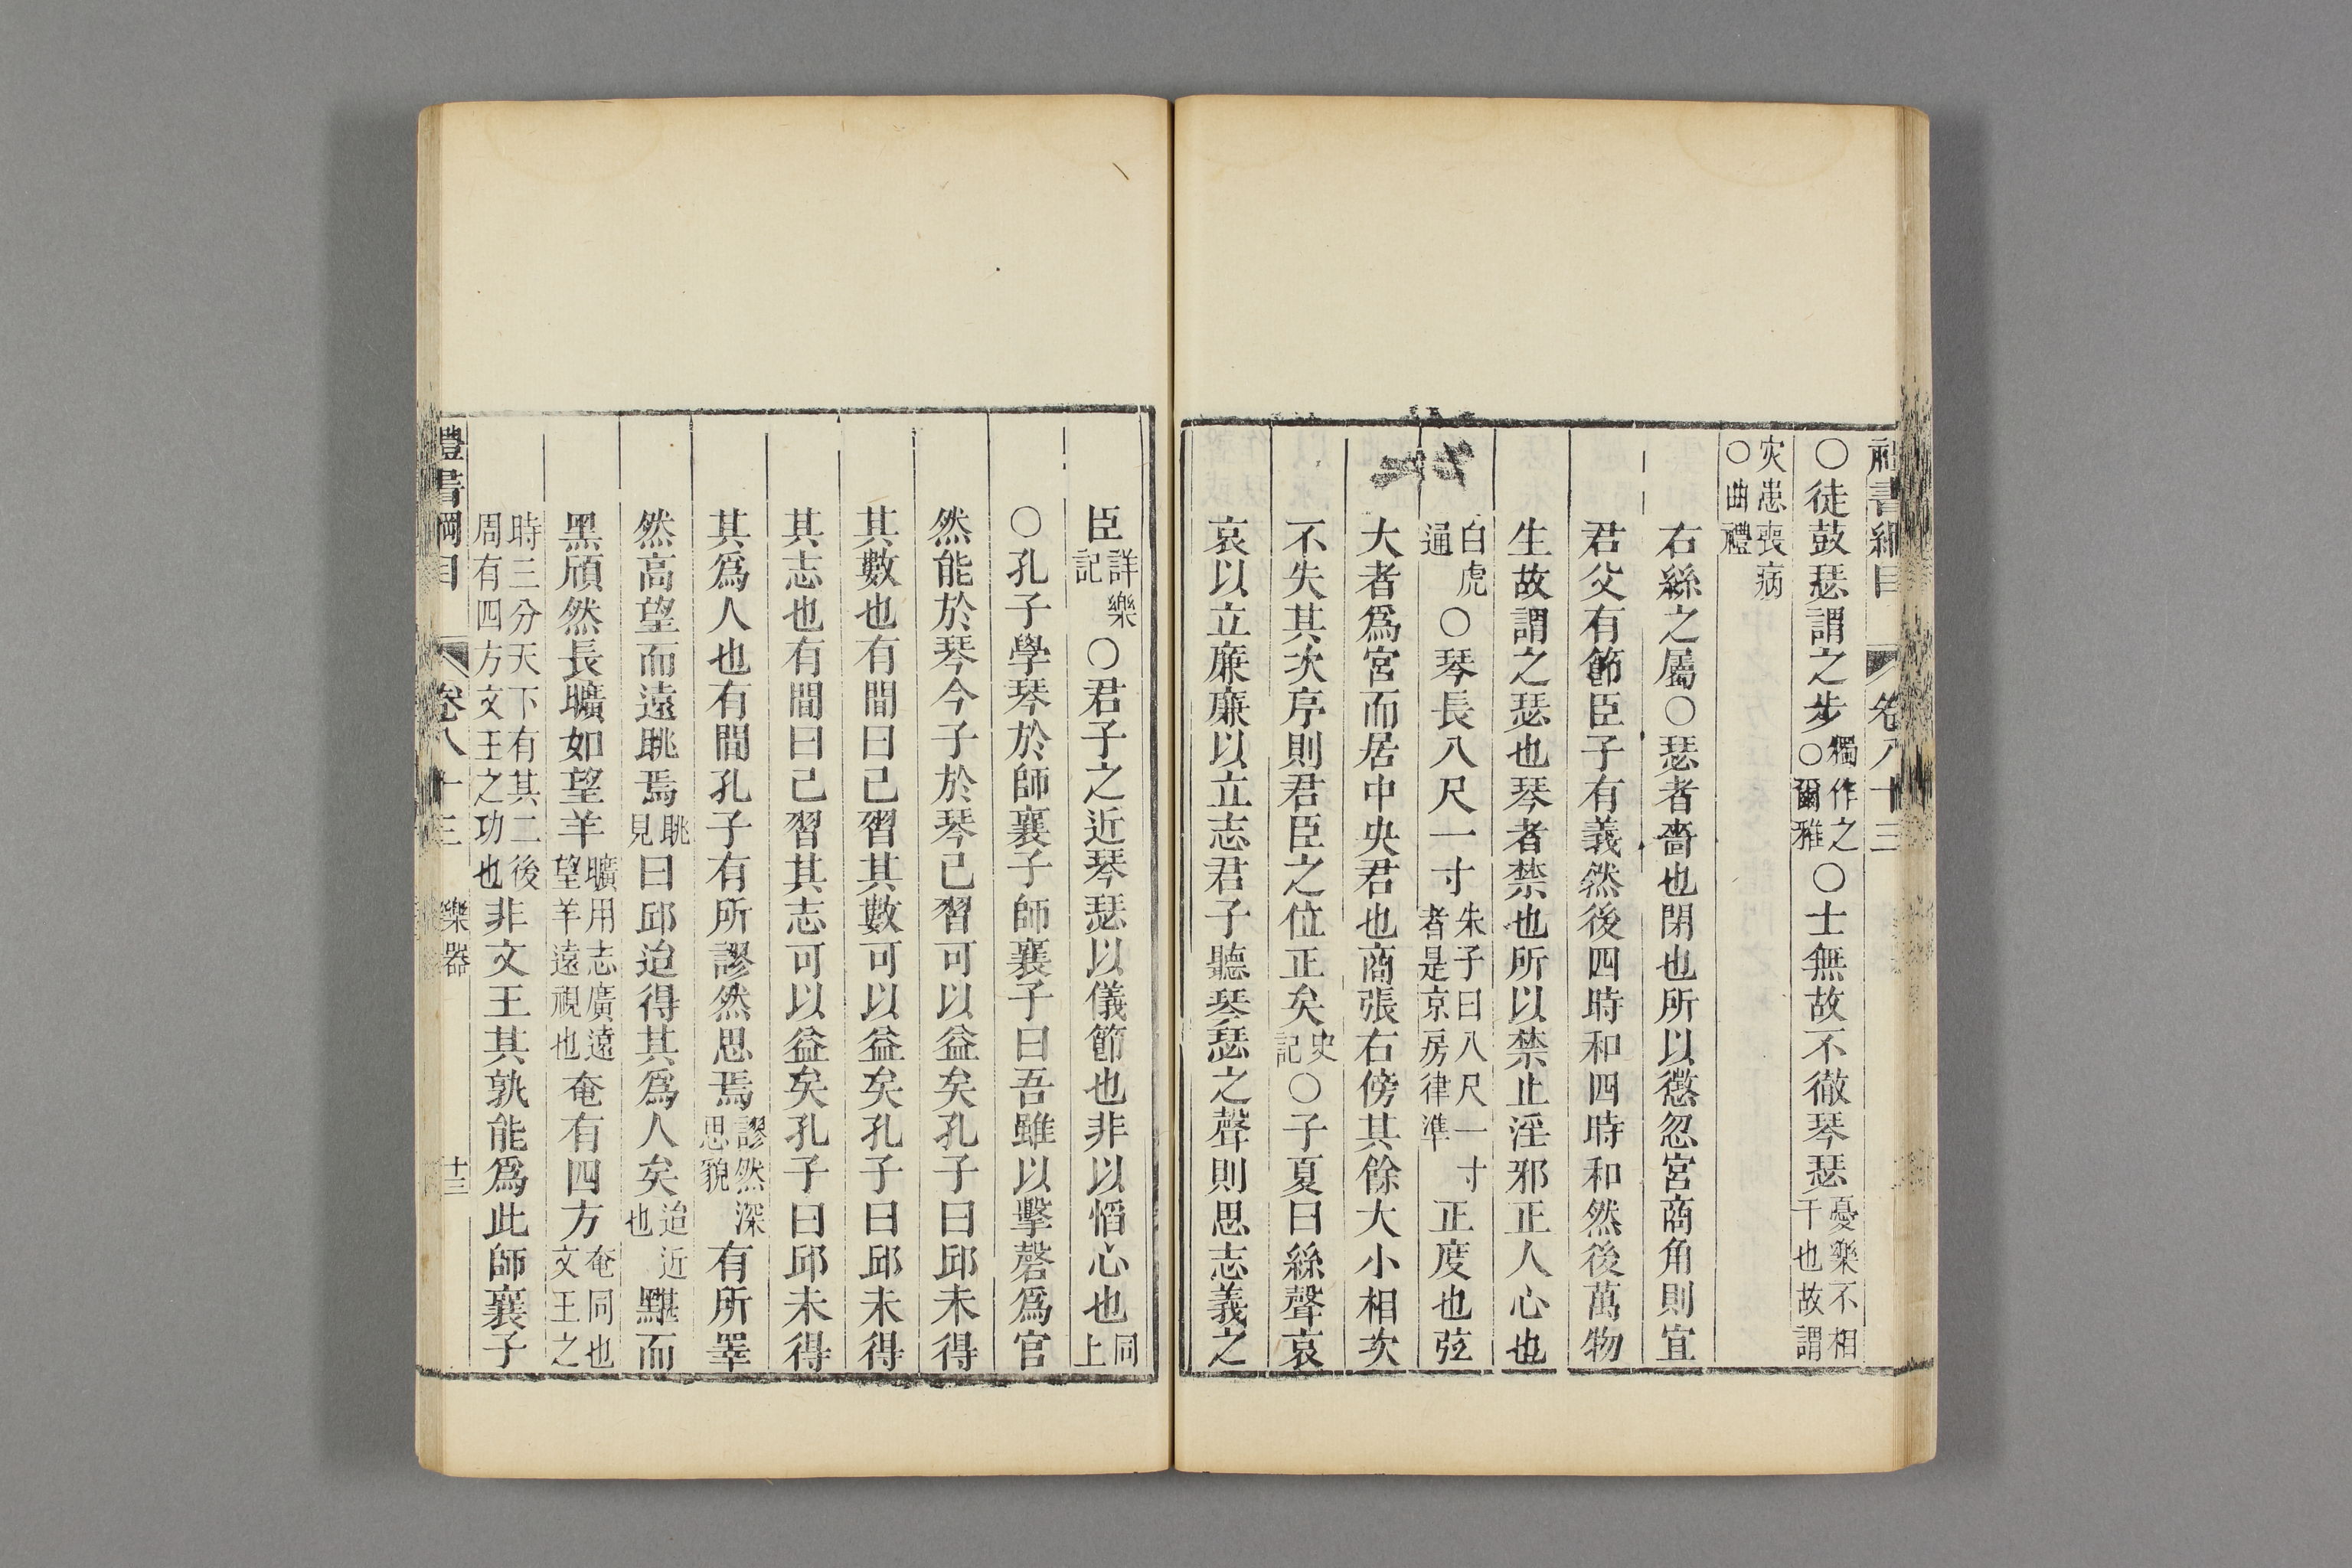 禮書綱目 卷八十三
○徒鼓瑟謂之步獨作之○爾雅○士無故不徹琴瑟憂樂不相干也故謂
灾患喪病○曲禮
右絲之屬○瑟者嗇也閉也所以懲忽宮商角則宜
君父有節臣子有義然後四時和四時和然後萬物
生故謂之瑟也琴者禁也所以禁止淫邪正人心也
白虎通○琴長八尺一寸朱子曰八尺一寸者是京房律準正度也弦
大者爲宮而居中央君也商張右傍其餘大小相次
不失其次序則君臣之位正矣史記○子夏曰絲聲哀
哀以立廉廉以立志君子聽琴瑟之聲則思志義之
臣詳樂記○君子之近琴瑟以儀節也非以慆心也同上
○孔子學琴於師襄子師襄子曰吾雖以擊磬爲官
然能於琴今子於琴已習可以益矣孔子曰邱未得
其數也有間曰已習其數可以益矣孔子曰邱未得
其志也有間曰已習其志可以益矣孔子曰邱未得
其爲人也有間孔子有所謬然思焉謬然深思貌有所睪
然高望而遠眺焉眺見曰邱迨得其爲人矣迨近也黮而
黑頎然長曠如望羊曠用志廣遠望羊遠視也奄有四方奄同也文王之
時三分天下有其二後周有四方文王之功也非文王其孰能爲此師襄子
禮書綱目 卷八十三 樂器 十三